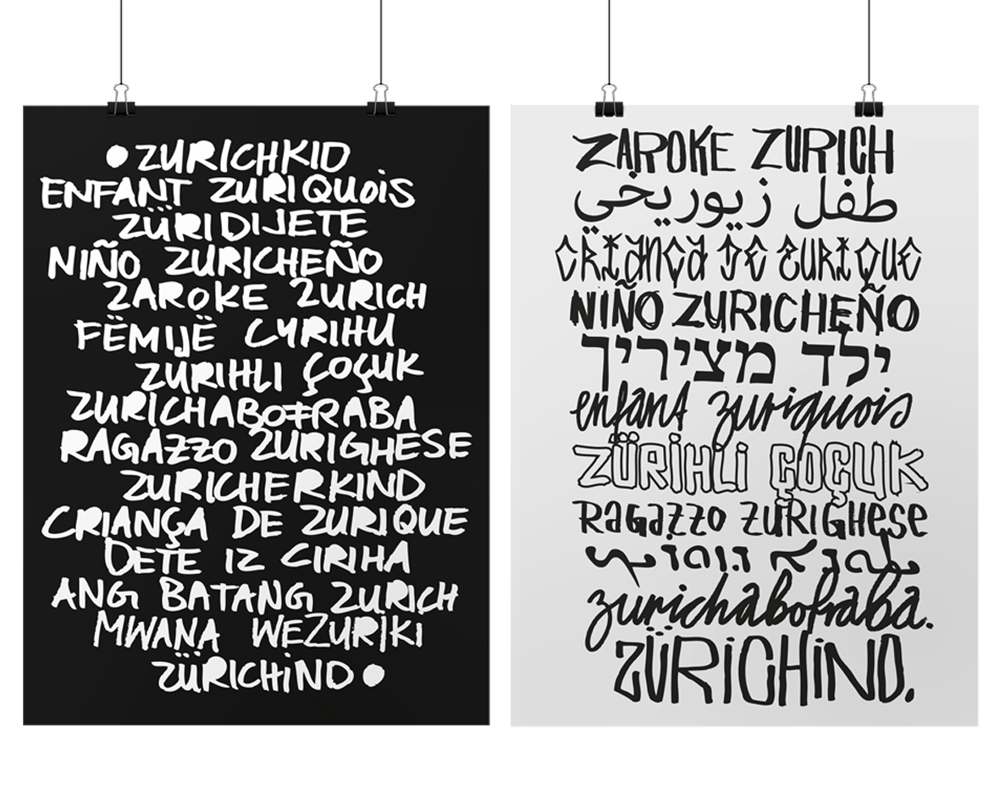 ZURICHKID
ENFANT ZURIQUOiS
ZÜRIDIJETE
NIÑO ZURICHEÑO
ZAROKE ZURICH
FËMIJË CYRIHU
ZÜRIHLI ÇOÇUK
ZURICHABOFRABA
RAGAZZO ZURIGHESE
ZURICHERKIND
CRIANÇA DE ZURIQUE
DETE IZ CIRIHA
ANG BATANG ZURICH
MWANA WEZURIKI
ZÜRICHiND
ZAROKE ZURICH
طفل زيوريخي
CRIANÇA DE ZURIQUE
NIÑO ZURICHEÑO
ילד מציריך
enfant zuriquois
ZÜRİHLi ÇOÇUK
RagaZZo ZURIGHeSe
zurichabofraba.
ZÜRiCHiND.